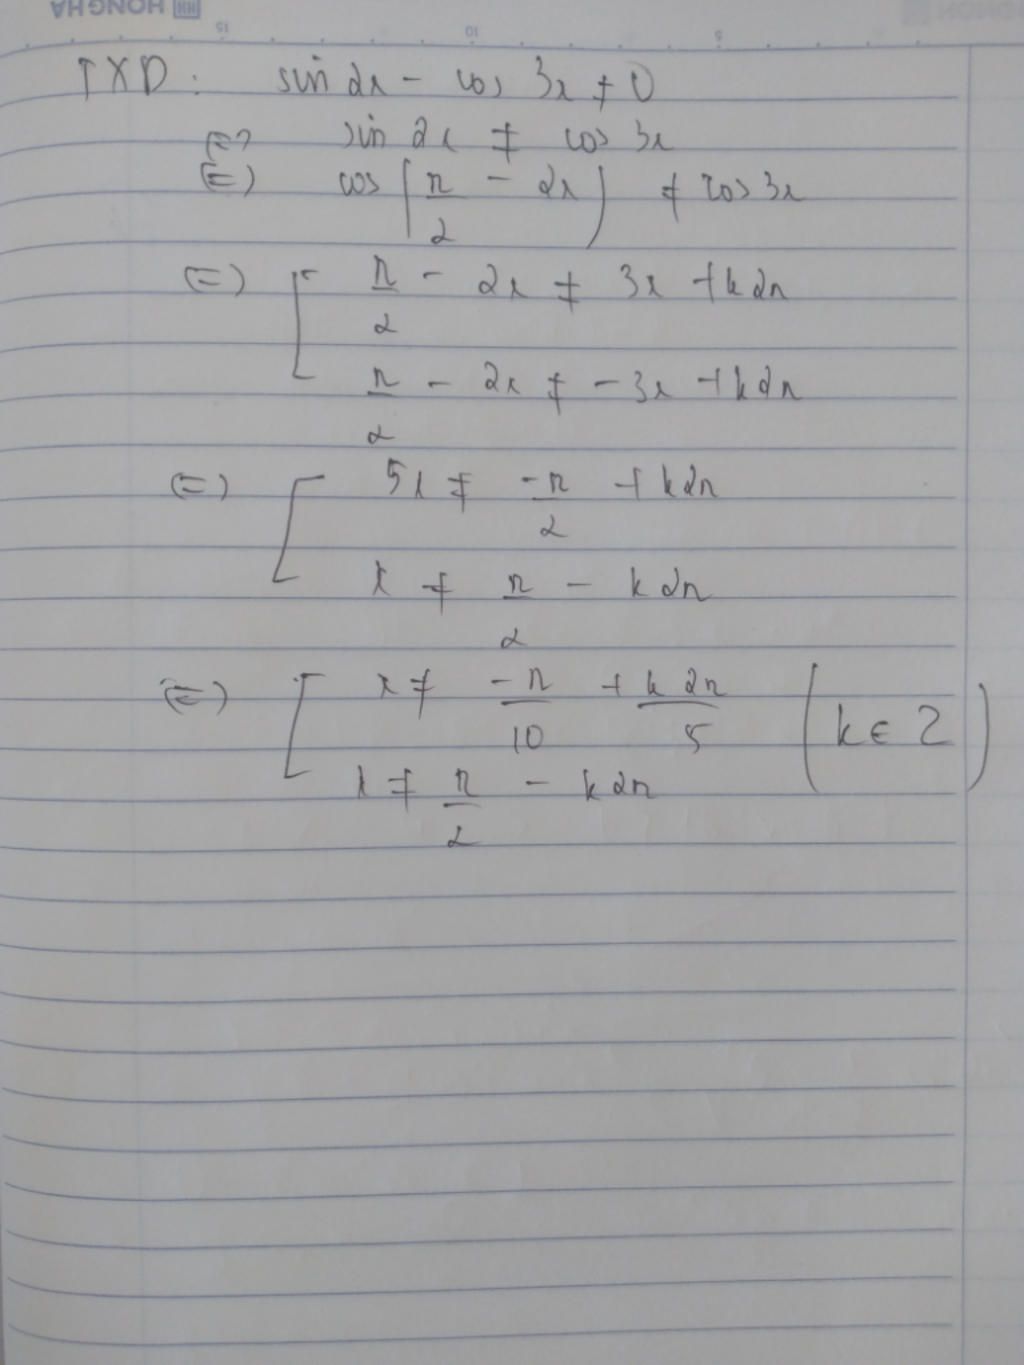 HONGHA
15 10 5
TXD : sin 2x - cos 3x ≠ 0
(=) sin 2x ≠ cos 3x
(=) cos (π/2 - 2x) ≠ cos 3x
(=) [ π/2 - 2x ≠ 3x + k2π
π/2 - 2x ≠ -3x + k2π
(=) [ 5x ≠ -π/2 + k2π
x ≠ π/2 - k2π
(=) [ x ≠ -π/10 + k2π/5 (k ∈ Z)
x ≠ π/2 - k2π